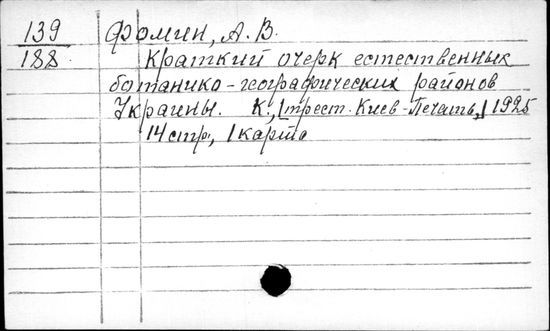 139 Фомин, А. В.
188. Краткий очерк естественных
ботанико-географических районов
Украины. К., [трест. Киев-Печать,] 1925
14 стр., 1 карта